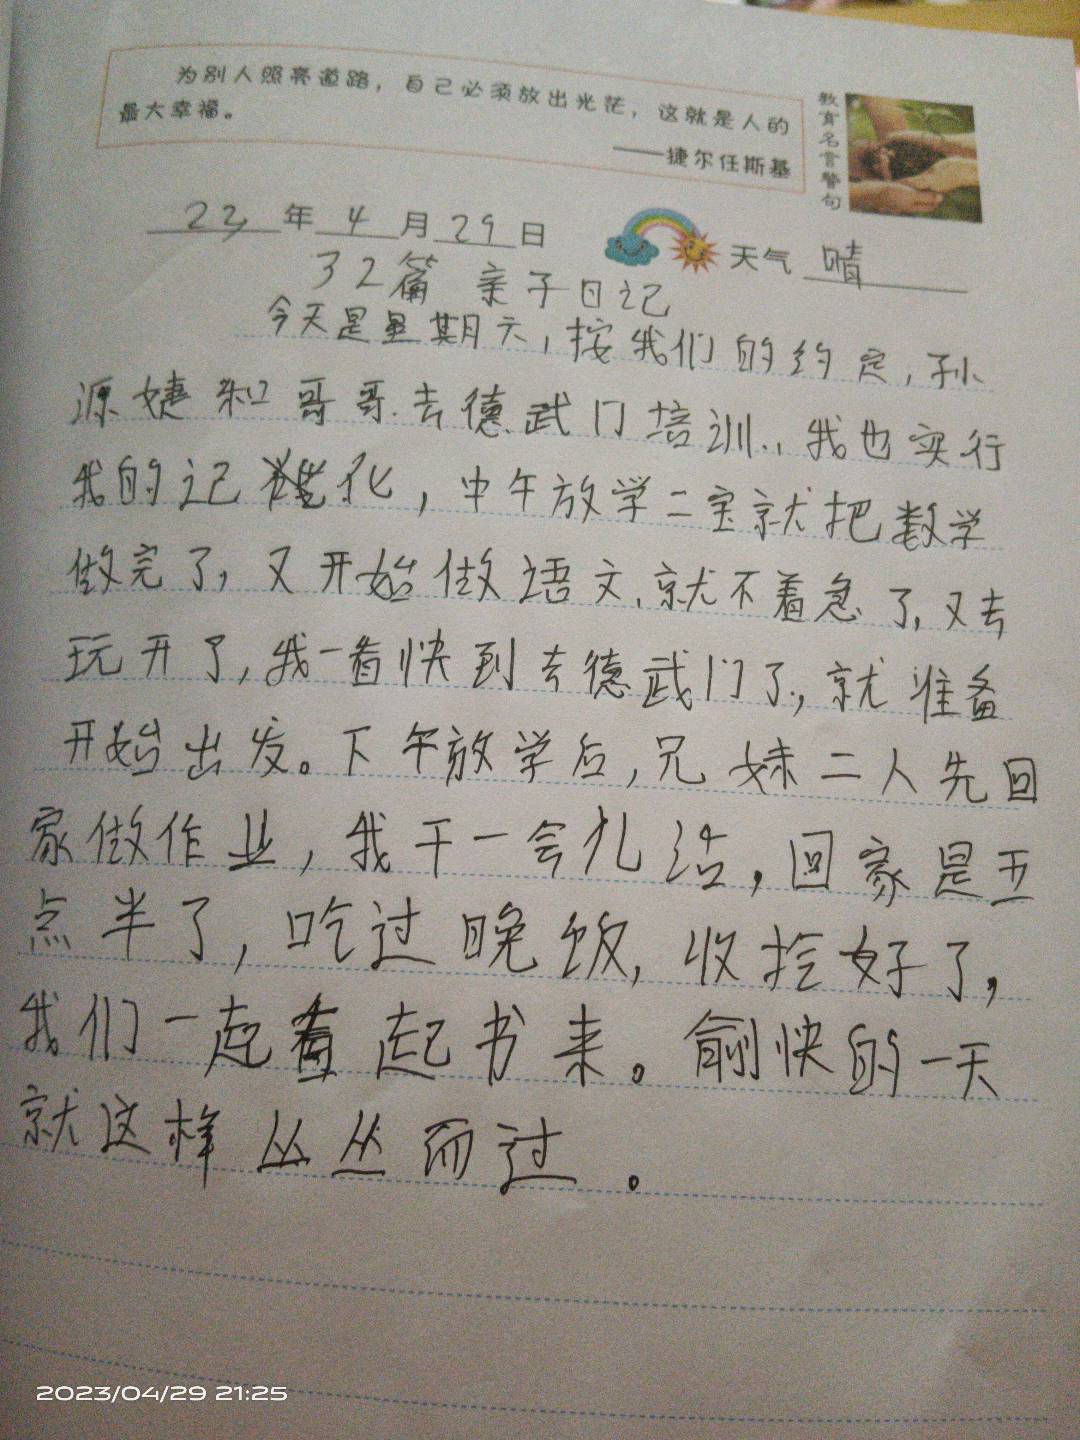 为别人照亮道路，自己必须放出光芒，这就是人的
最大幸福。
——捷尔任斯基
教育名言警句
23年4月29日
天气 晴
32篇 亲子日记
今天是星期六，按我们的约定，孙
源婕和哥哥去德武门培训，我也实行
我的记 化，中午放学二宝就把数学
做完了，又开始做语文，就不着急了，又去
玩开了，我一看快到去德武门了，就准备
开始出发。下午放学后，兄妹二人先回
家做作业，我干一会扎活，回家是五
点半了，吃过晚饭，收拾好了，
我们一起看起书来。愉快的一天
就这样丛丛而过。
2023/04/29 21:25